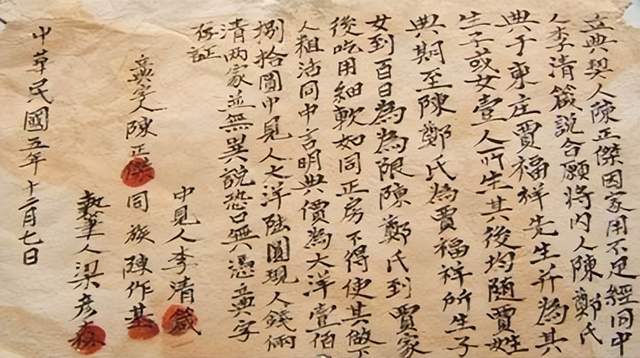 立典契人陳正傑因家用不足經同中
人李清箴說合願將內人陳鄭氏
典于東庄賈福祥先生并為其
生子或女壹人所生其後均隨賈姓
典期至陳鄭氏為賈福祥所生子
女到百日為為限陳鄭氏到賈家
後吃用細軟如同正房不得使其做下
人粗活同中言明典價為大洋壹佰
捌拾圓中見人大洋陆圓現人錢俩
清两家並無異說恐口無憑立典字
存証
中見人李清箴
立典字人陳正傑 同族陳作基
執筆人梁彦森
中華民國五年十二月七日